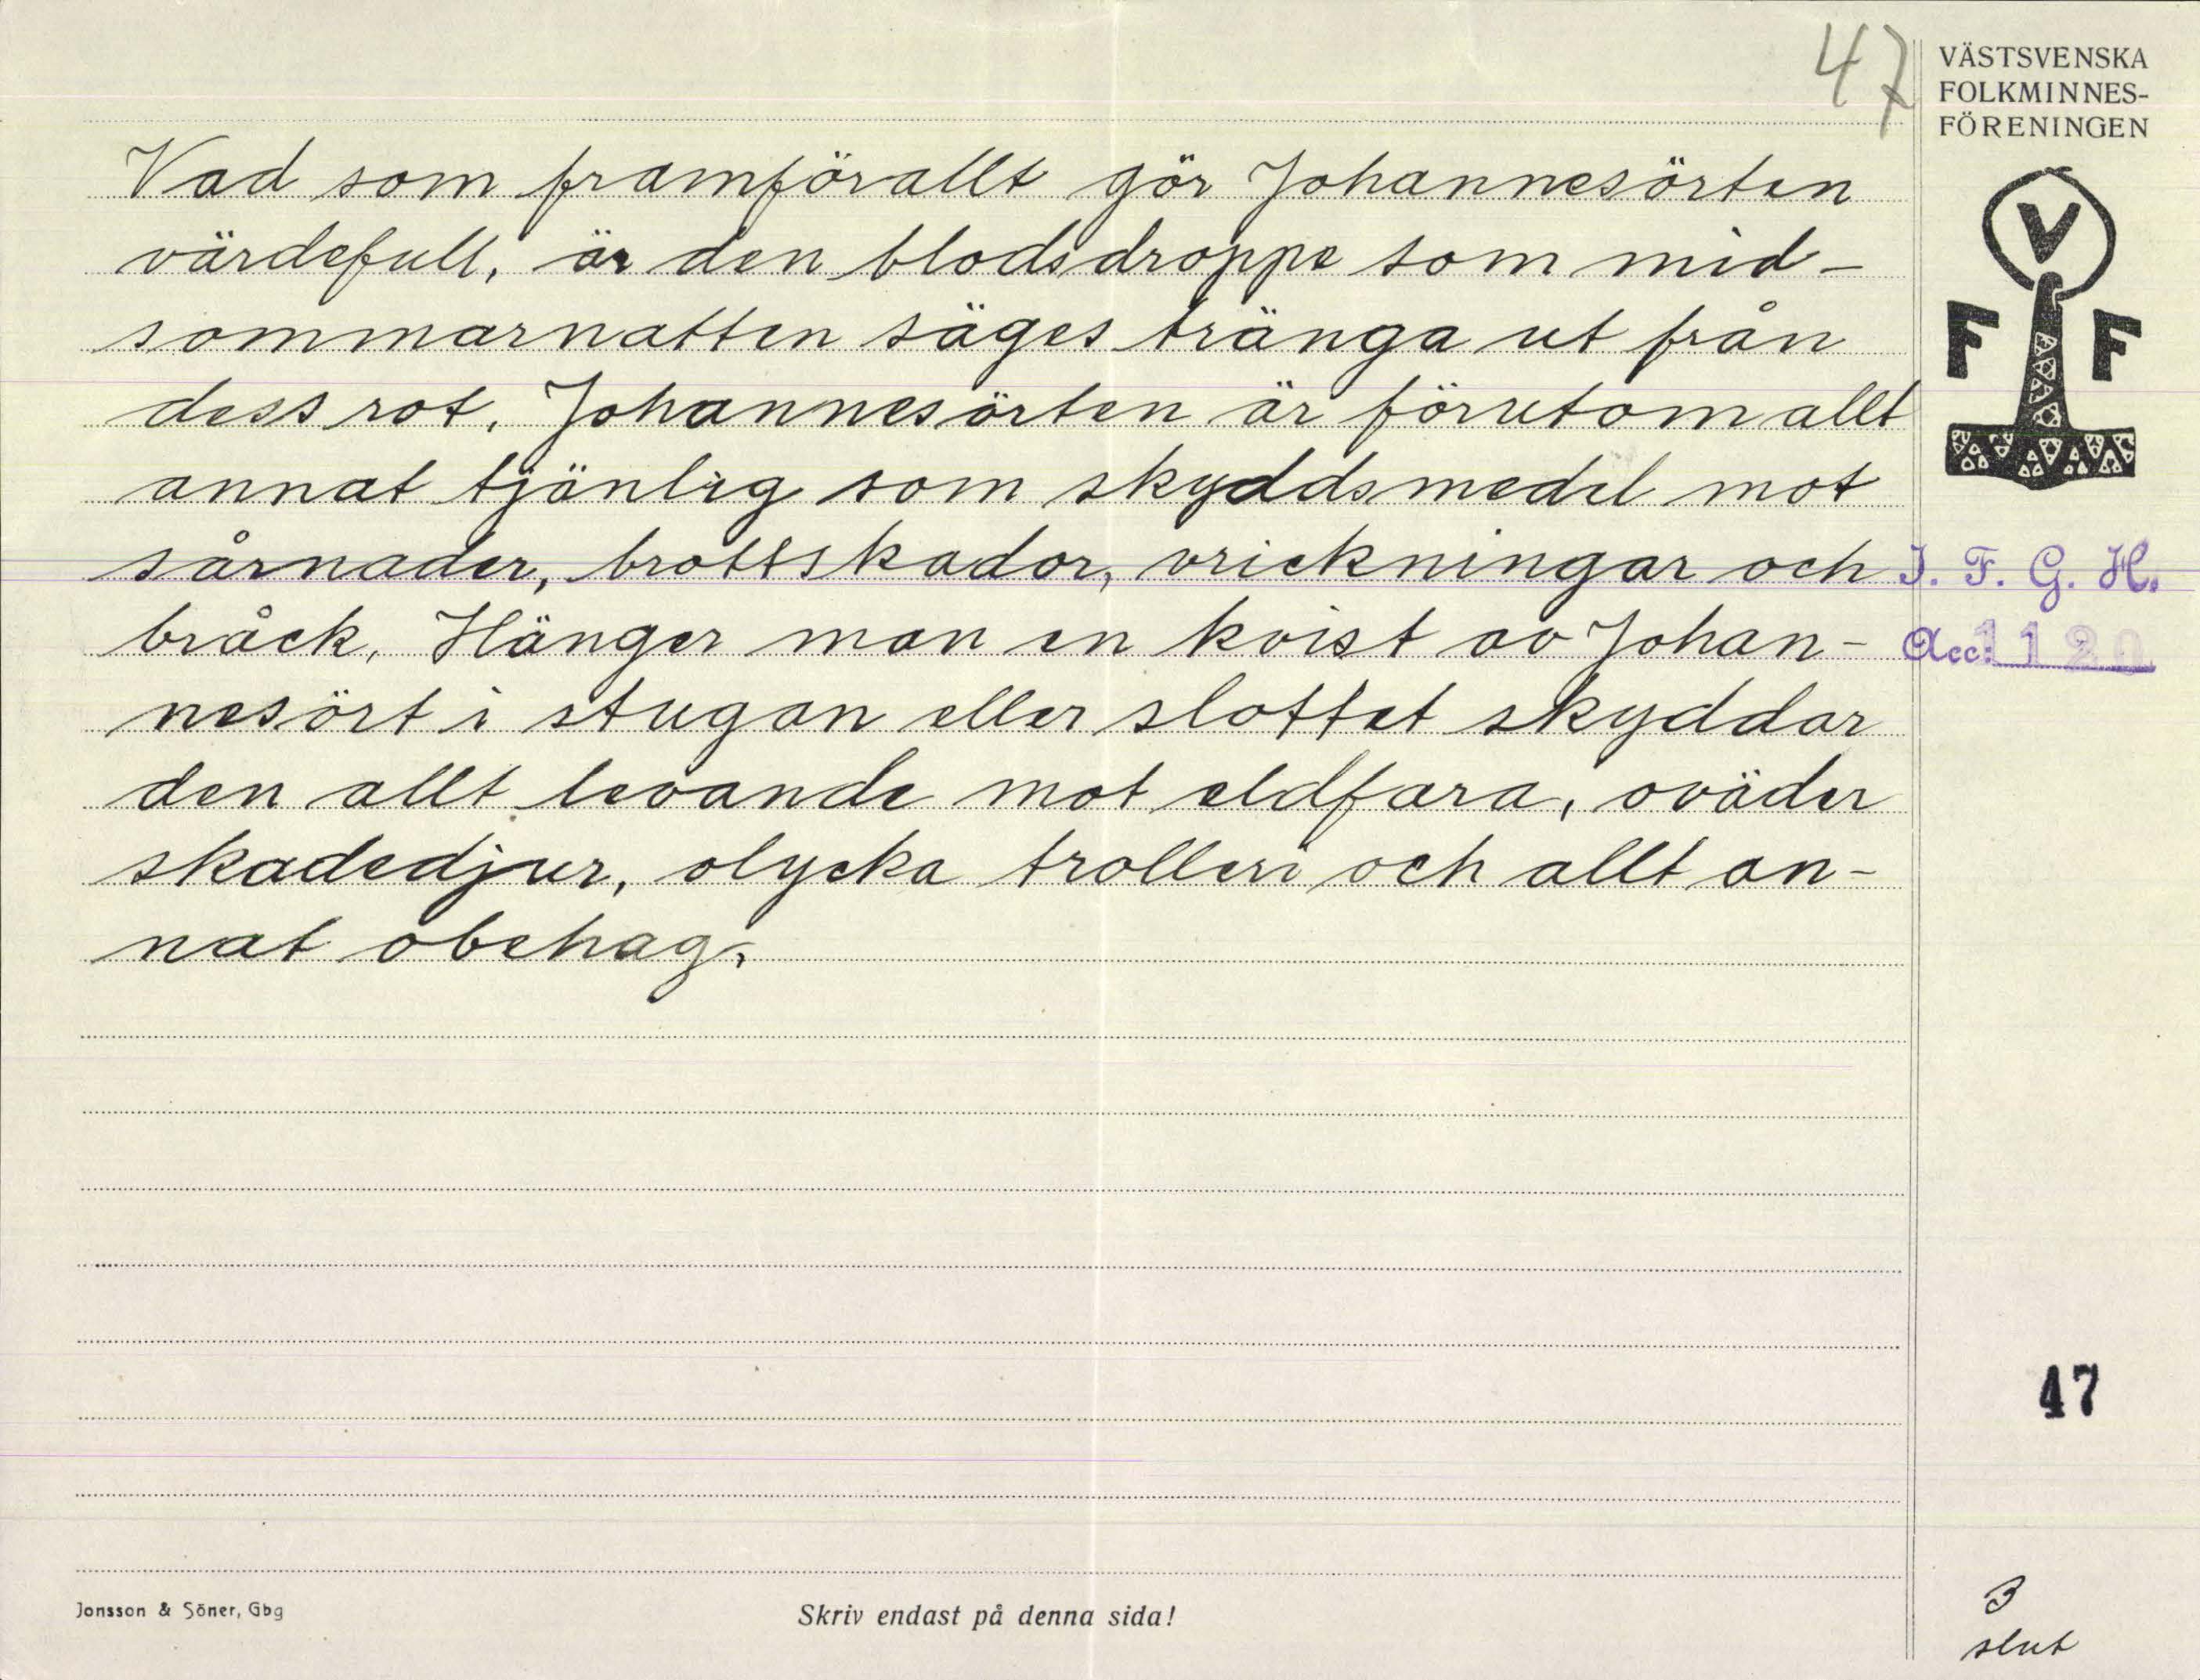 47
VÄSTSVENSKA
FOLKMINNES-
FÖRENINGEN
V
F F
Vad som framförallt gör Johannesörten
värdefull, är den blodsdroppe som mid-
sommarnatten säges tränga ut från
dess rot. Johannesörten är förutom allt
annat tjänlig som skyddsmedel mot
sårnader, brottskador, vrickningar och
bråck. Hänger man en kvist av Johan-
nesört i stugan eller slottet skyddar
den allt levande mot eldfara, oväder
skadedjur, olycka trolleri och allt an-
nat obehag.
I. F. G. H.
Acc. 1120
47
3
slut
Jonsson & Söner, Gbg
Skriv endast på denna sida!